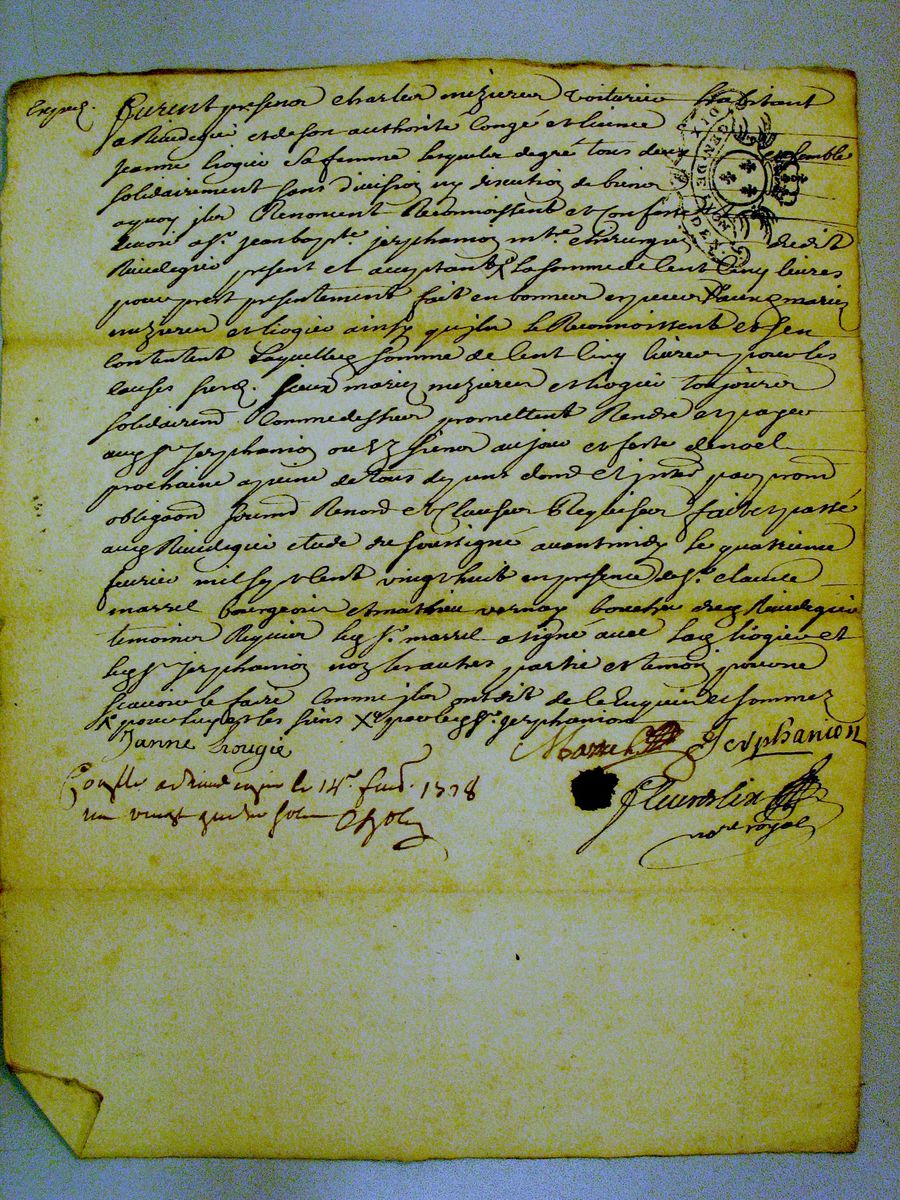 Expedié.
Furent presens charles mezieres voiturier habitant
a Rivedegié et de son authorité Congé et licence
jeanne liogié sa femme lesquels de gré tous deux ensemble
solidairement sans division ny discution de biens
a quoy ils Renoncent Reconnoissent et Confessent
devoir a Sr. jean bapte. jerphanion mtre. chirurgien dudit
Rivedegié present et acceptant X la somme de Cent Cinq livres
pour prest presentement fait en bonnes especes X aux mariez
mezieres et liogié ainsy qu'ils le Reconnoissent et s'en
Contentent Laquelle somme de Cent Cinq livres pour les
causes susd. mariez mezieres et liogié toujours
solidairemt. Comme dessus promettent Rendre et payer
aud Sr. jerphanion ou es siens au jour et feste de noel
prochaine a peine de tous depens
oblig Renon et Clauses Requises fait et passé
aud Rivedegié etude du soussigné avant midy le quatrieme
fevrier mil sept Cent vingt huit en presence de Sr. claude
marrel bourgeois et mathieu vernay boucher dud Rivedegié
temoins Requis led Sr. marrel a signé avec lad liogié et
led Sr. jerphanion non les autres partie et temoin pour ne
scavoir le faire Comme ils ont dit de ce Enquis et sommez
X pour luy et les siens X par led Sr. jerphanion
Janne Liougié
Marrel
Jerphanion
Conlle a Rivedegié le 14e. fev. 1728
Fleurdelix
no.re royal